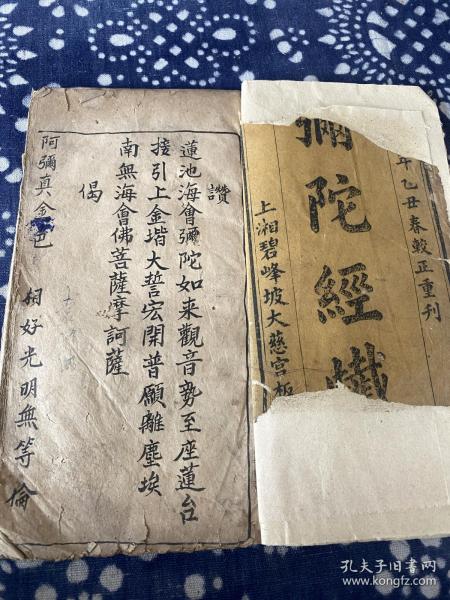 年乙丑春較正重刊
彌陀經懺
上湘碧峰坡大慈宮板
讚
蓮池海會彌陀如來觀音勢至座蓮台
接引上金堦大誓宏開普願離塵埃
南無海會佛菩薩摩訶薩
偈
阿彌真金色
相好光明無等倫
孔夫子旧书网
www.kongfz.com